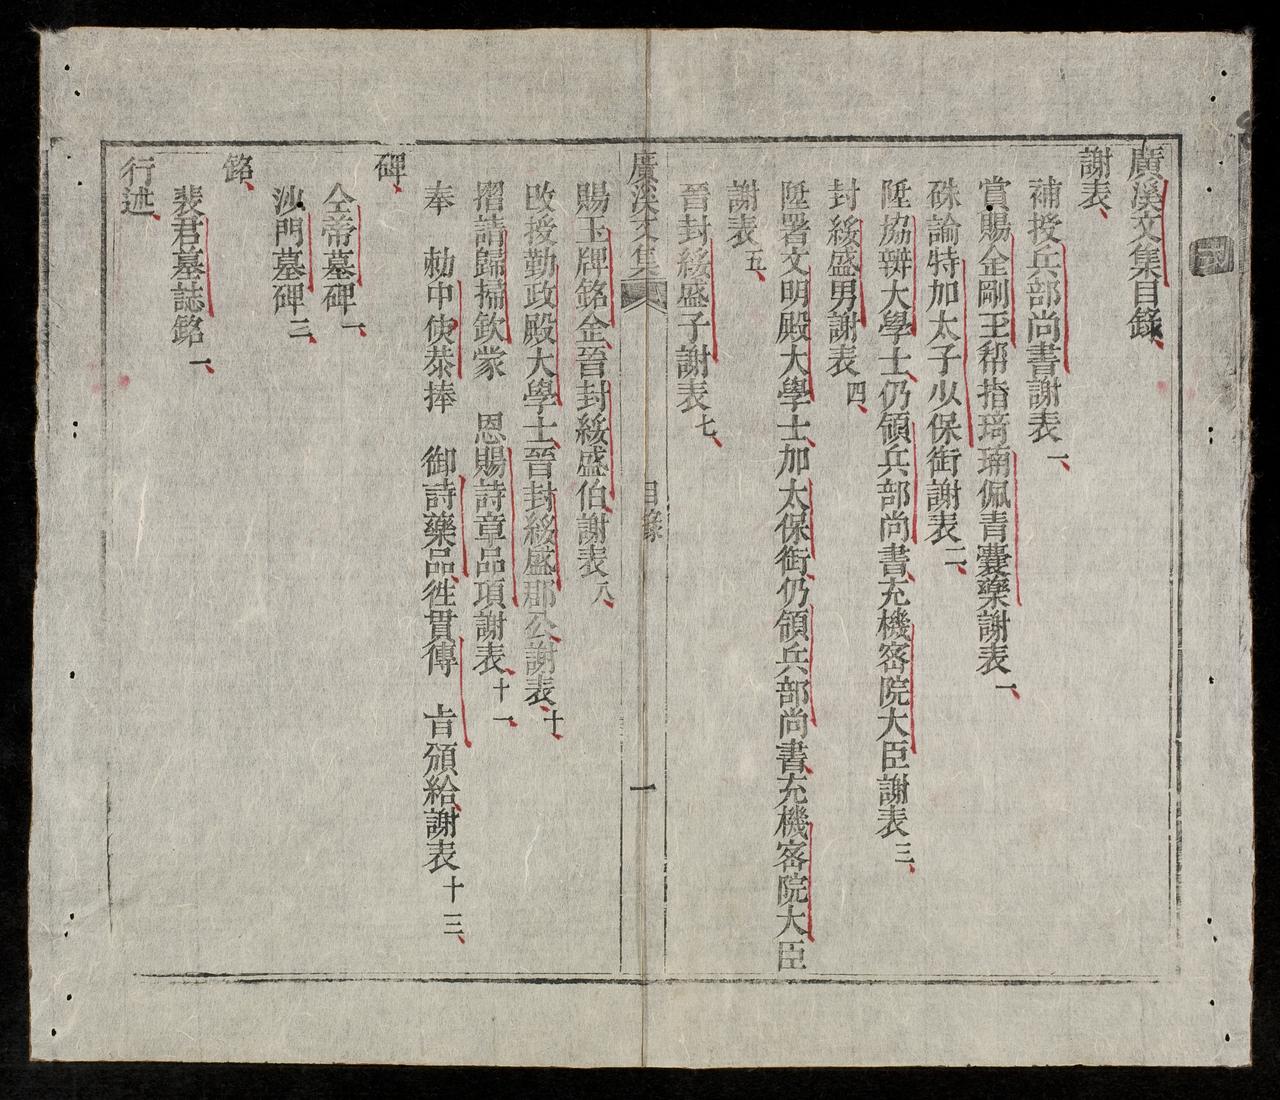 廣溪文集目錄
謝表
補授兵部尚書謝表 一
賞賜金剛玉帮指琦㻴佩青囊藥謝表 一
硃諭特加太子少保銜謝表 二
陞協辨大學士仍領兵部尚書充機密院大臣謝表 三
封綏盛男謝表 四
陞署文明殿大學士加太保銜仍領兵部尚書充機密院大臣
謝表 五
晉封綏盛子謝表 七
廣溪文集 目錄 一
賜玉牌銘金晉封綏盛伯謝表 八
改授勤政殿大學士晉封綏盛郡公謝表 十
摺請歸掃欽蒙 恩賜詩章品項謝表 十一
奉 勅中使恭捧 御詩藥品徃貫傳 旨頒給謝表 十三
碑
仝帝墓碑 一
沙門墓碑 三
銘
裴君墓誌銘 一
行述